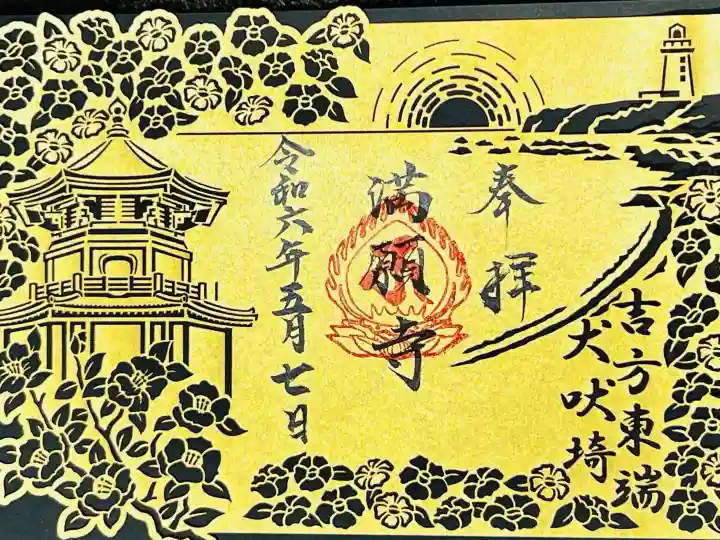 奉拝
吉方東端
犬吠埼
満願寺
令和六年五月七日